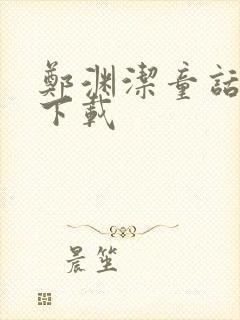 鄭渊潔童話
下載
晨笙